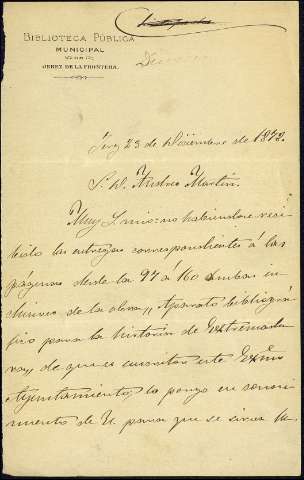 BIBLIOTECA PÚBLICA
MUNICIPAL
DE
JEREZ DE LA FRONTERA
Jerez 23 de Diciembre de 1878.
S. D. Andres Martin.
Muy S. mio: no habiendose reci
bido las entregas correspondientes á las
páginas desde la 97 á 160 ambas in
clusives de la obra, "Aparato bibliográ
fico para la historia de Extremadu
ra" de que es suscritor este Excmo
Ayuntamiento, lo pongo en conoci
miento de V. para que se sirva